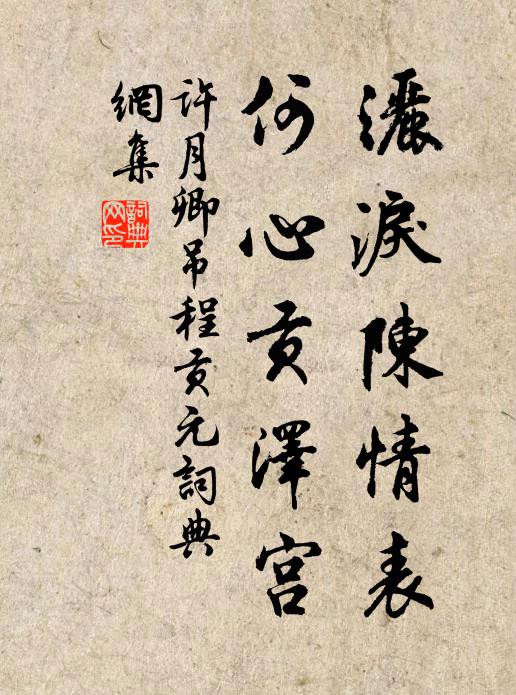 灑淚陳情表
何心貢澤宮
許月卿吊程貢元詞典
網集
詞典
网印